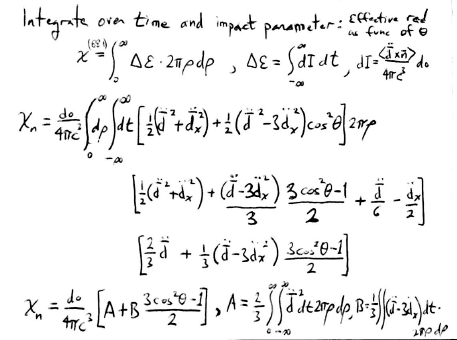 Integrate over time and impact parameter: Effective rad
as func of θ
ϰ = ∫₀^∞ Δε · 2πρdρ , Δε = ∫_{-∞}^∞ dI dt , dI = <d̈×n̄>²/4πc³ do
ϰₙ = do/4πc³ ∫₀^∞ dρ ∫_{-∞}^∞ dt [½(d̈² + d̈ₓ²) + ½(d̈² - 3d̈ₓ²) cos²θ] 2πρ
[½(d̈² + d̈ₓ²) + (d̈ - 3d̈ₓ²)/3 (3cos²θ - 1)/2 + d̈/6 - d̈ₓ/2]
[⅔ d̈ + ⅓(d̈ - 3d̈ₓ²) (3cos²θ - 1)/2]
ϰₙ = do/4πc³ [A + B (3cos²θ - 1)/2] , A = ⅔ ∫₀^∞ ∫_{-∞}^∞ d̈² dt 2πρ dρ, B = ⅓ ∫∫ (d̈ - 3d̈ₓ) dt ·
2πρ dρ